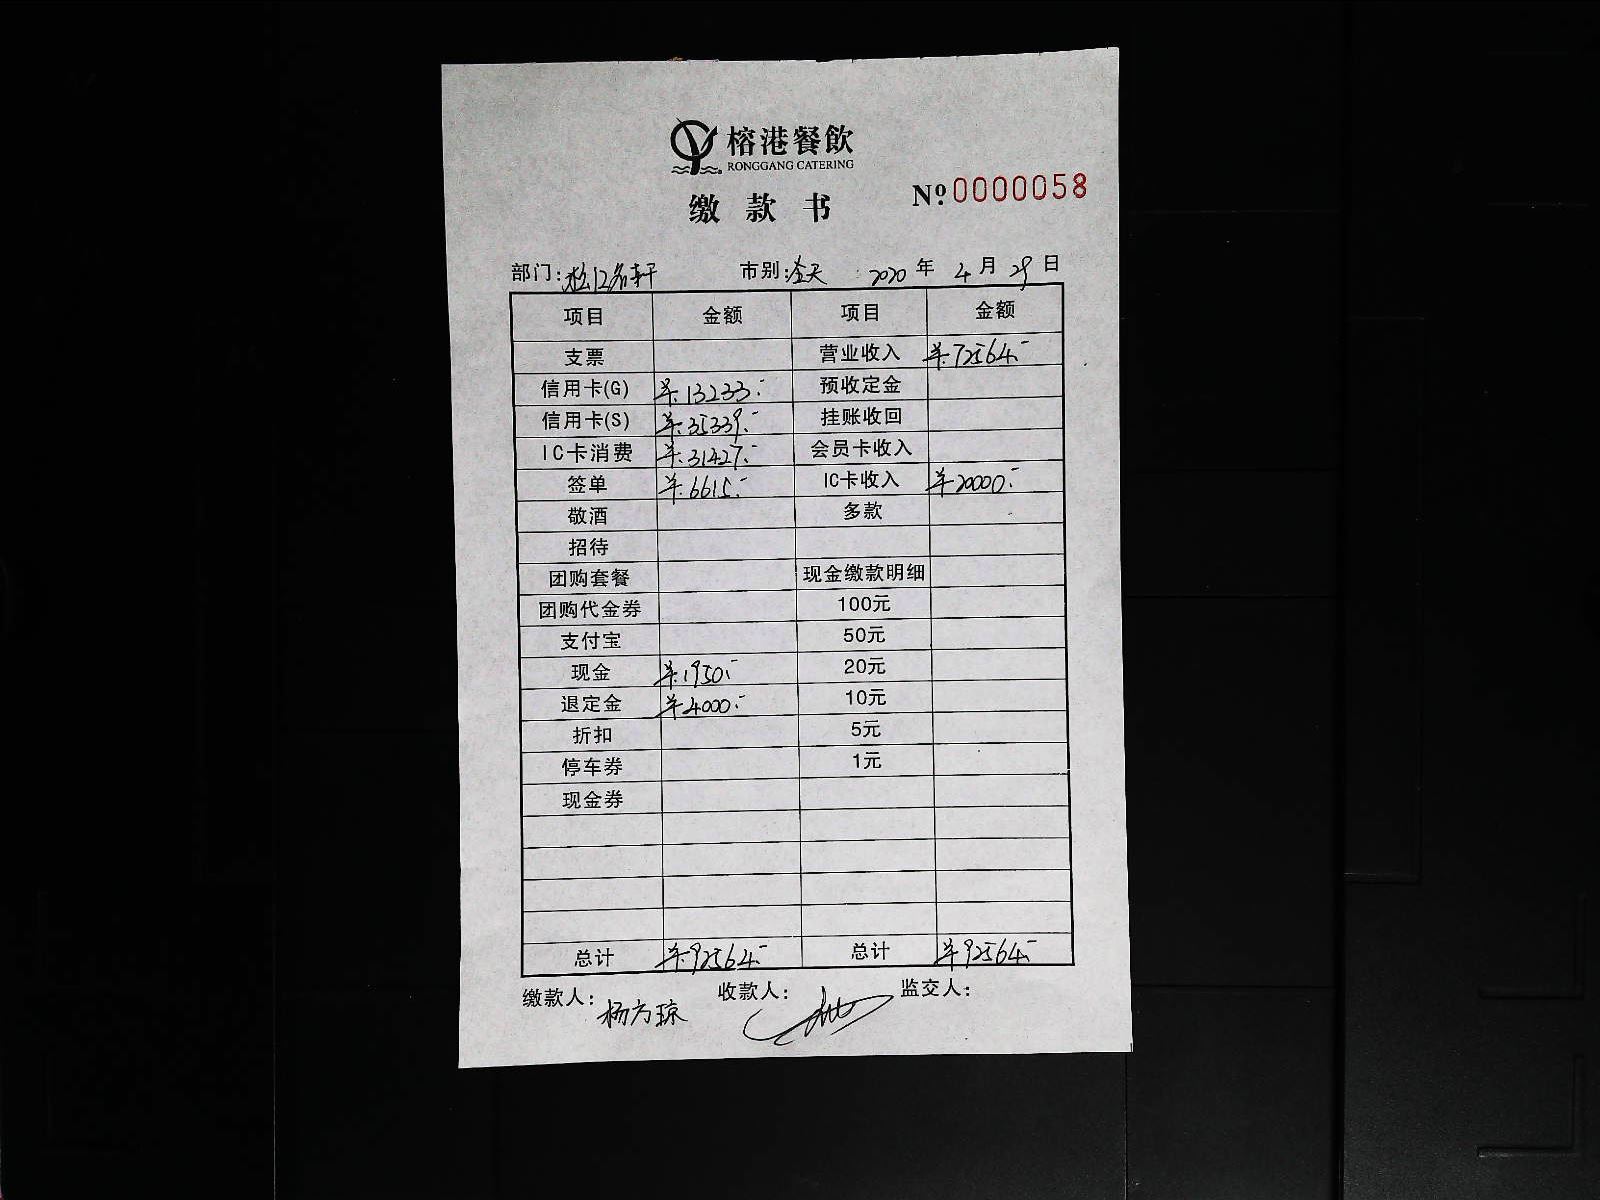 榕港餐飲
RONGGANG CATERING
缴款书
№ 0000058
部门: 市别: 全天 2020年4月29日
项目 金额 项目 金额
支票 营业收入 ¥72564.-
信用卡(G) ¥13233.- 预收定金
信用卡(S) ¥35339.- 挂账收回
IC卡消费 ¥31427.- 会员卡收入
签单 ¥6615.- IC卡收入 ¥20000.-
敬酒 多款
招待
团购套餐 现金缴款明细
团购代金券 100元
支付宝 50元
现金 ¥1950.- 20元
退定金 ¥4000.- 10元
折扣 5元
停车券 1元
现金券
总计 ¥92564.- 总计 ¥92564.-
缴款人: 杨方琼 收款人: 监交人: